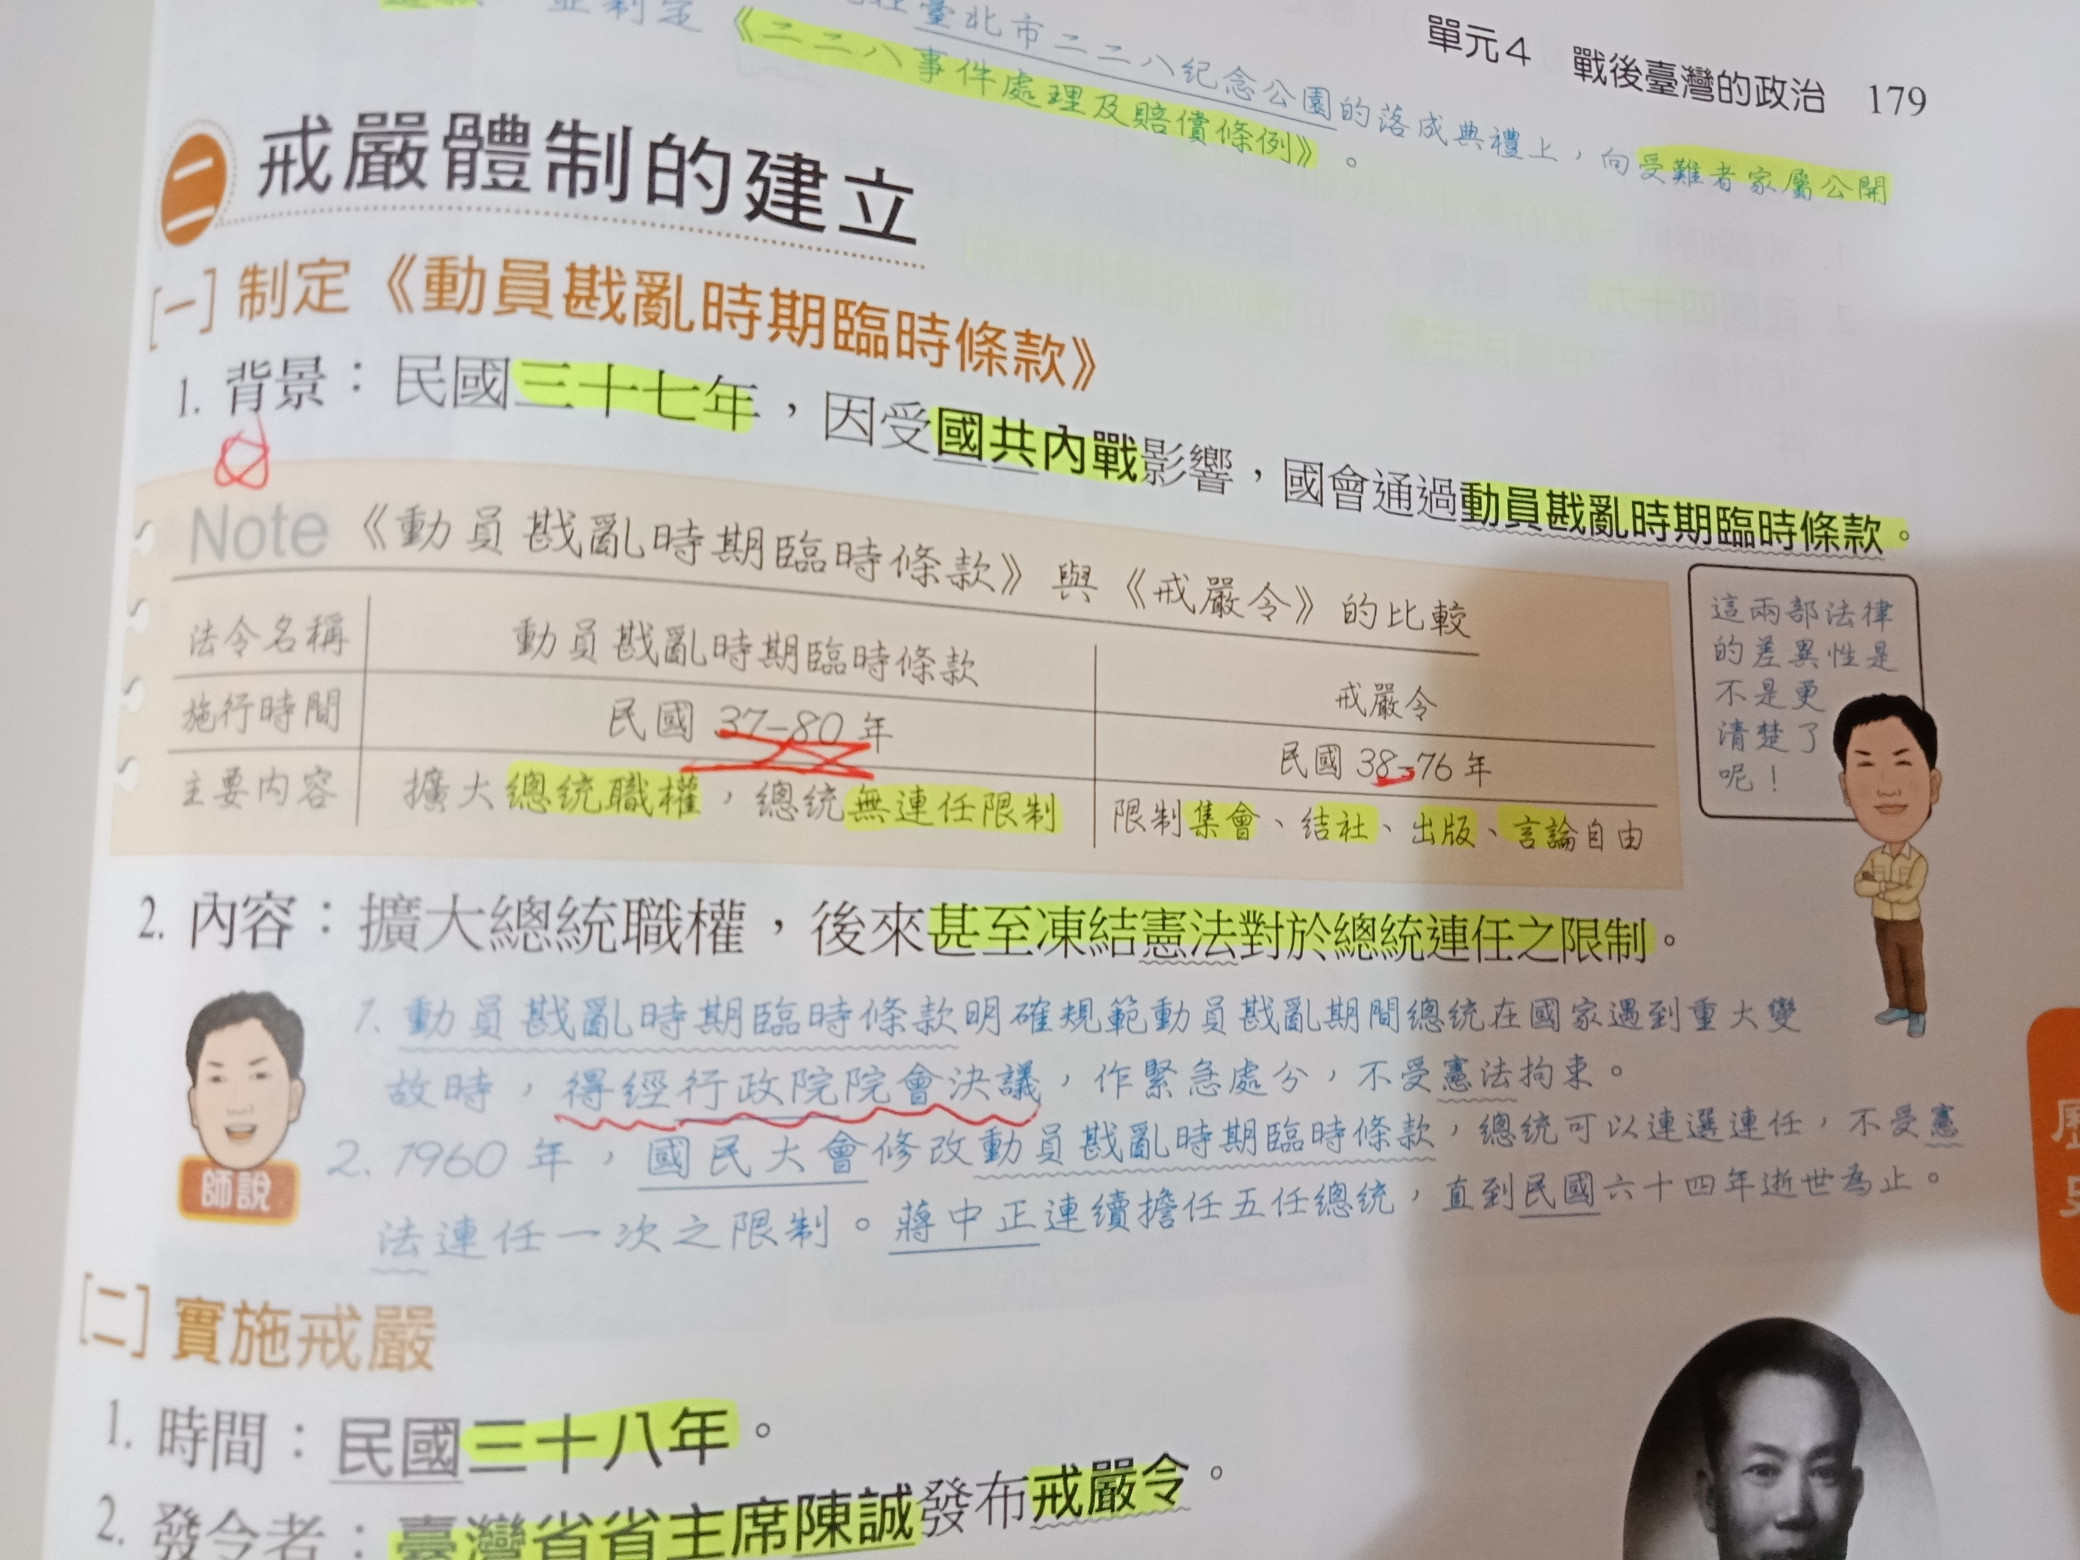 單元4 戰後臺灣的政治 179
臺北市二二八紀念公園的落成典禮上，向受難者家屬公開
並制定《二二八事件處理及賠償條例》。
二 戒嚴體制的建立
[一]制定《動員戡亂時期臨時條款》
1. 背景：民國三十七年，因受國共內戰影響，國會通過動員戡亂時期臨時條款。
Note 《動員戡亂時期臨時條款》與《戒嚴令》的比較
法令名稱 動員戡亂時期臨時條款 戒嚴令
施行時間 民國 37-80 年 民國 38-76 年
主要內容 擴大總統職權，總統無連任限制 限制集會、結社、出版、言論自由
這兩部法律
的差異性是
不是更
清楚了
呢！
2. 內容：擴大總統職權，後來甚至凍結憲法對於總統連任之限制。
師說
1. 動員戡亂時期臨時條款明確規範動員戡亂期間總統在國家遇到重大變
故時，得經行政院院會決議，作緊急處分，不受憲法拘束。
2. 1960 年，國民大會修改動員戡亂時期臨時條款，總統可以連選連任，不受憲
法連任一次之限制。蔣中正連續擔任五任總統，直到民國六十四年逝世為止。
[二]實施戒嚴
1. 時間：民國三十八年。
2. 發令者：臺灣省省主席陳誠發布戒嚴令。
歷史